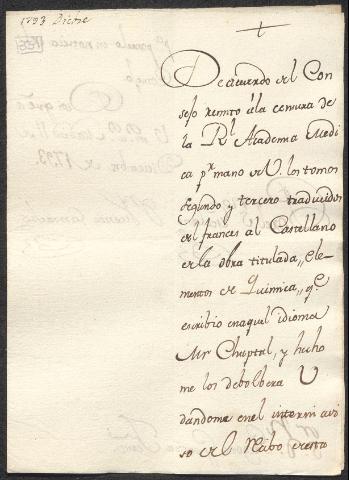 1793 Dicbre
+
De acuerdo del Con
sejo remito á la censura de
la Rl Academia Medi
ca pr mano de V. los tomos
segundo y tercero traducidos
del frances al Castellano
de la obra titulada, Ele-
mentos de Quimica, qe
escribio en aquel idioma
Mr Chaptal, y hecho
me los debolbera V
dandome en el interin avi
so del Recibo de esta